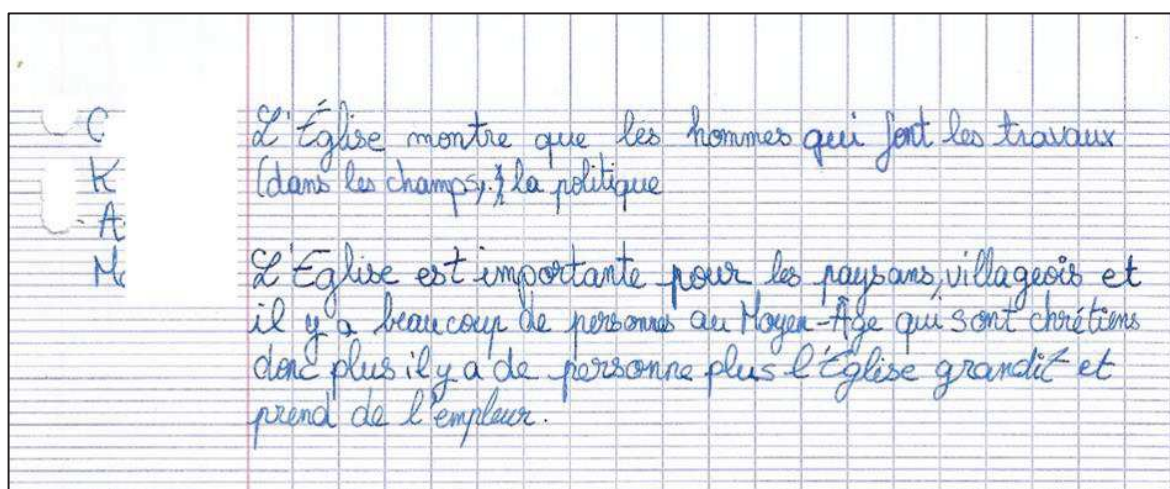 C
K
A
M
L'Église montre que les hommes qui font les travaux
(dans les champs, la politique
L'Eglise est importante pour les paysans, villageois et
il y a beaucoup de personnes au Moyen-Âge qui sont chrétiens
donc plus il y a de personne plus l'Église grandit et
prend de l'empleur.